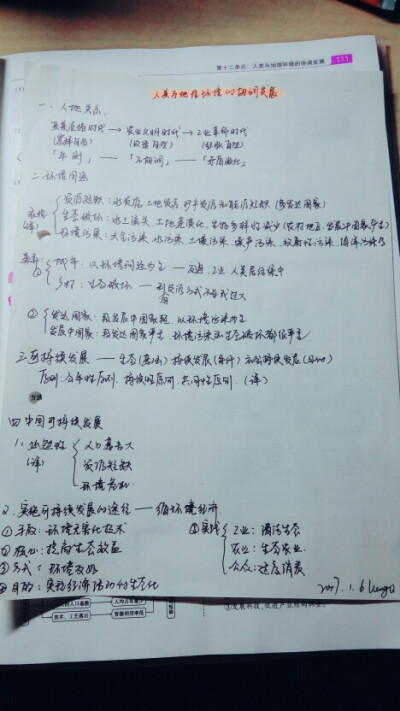 第十二单元 人类与地理环境的协调发展 111
人类与地理环境的协调发展
一、人地关系
采集渔猎时代 → 农业文明时代 → 工业革命时代
(崇拜自然) (改造自然) (征服自然)
「 」 —— 「不协调」 —— 「矛盾激化」
二、环境问题
表现 (详)
资源短缺：水资源、土地资源 能源短缺 (发达国家)
生态破坏：水土流失、土地荒漠化、生物多样性减少 (农村地区、发展中国家严重)
环境污染：大气污染、水污染、土壤污染、噪声污染、放射性污染、海洋污染
城市：以环境问题为主 —— 交通、工业、人类居住集中
乡村：生态破坏 —— 利用资源方式不当或过大
② 发达国家：较发展中国家轻，以环境污染为主
发展中国家：较发达国家严重，环境污染和生态破坏都很严重
三、可持续发展 —— 生态(基础)持续发展(条件)社会持续发展(目的)
原则：公平性原则、持续性原则、共同性原则。(详)
四 中国可持续发展
1. 必要性 (详)
人口庞大
资源短缺
环境危机
2. 实施可持续发展的途径 —— 循环经济
① 手段：环境无害化技术
② 核心：提高生态效益
③ 方式：环境友好
④ 目的：实现经济活动的生态化
⑤ 实践
工业：清洁生产
农业：生态农业
公众：适度消费
2017.1.6
技术、工艺落后
资源利用率低
③发展科技，促进产业结构调整。